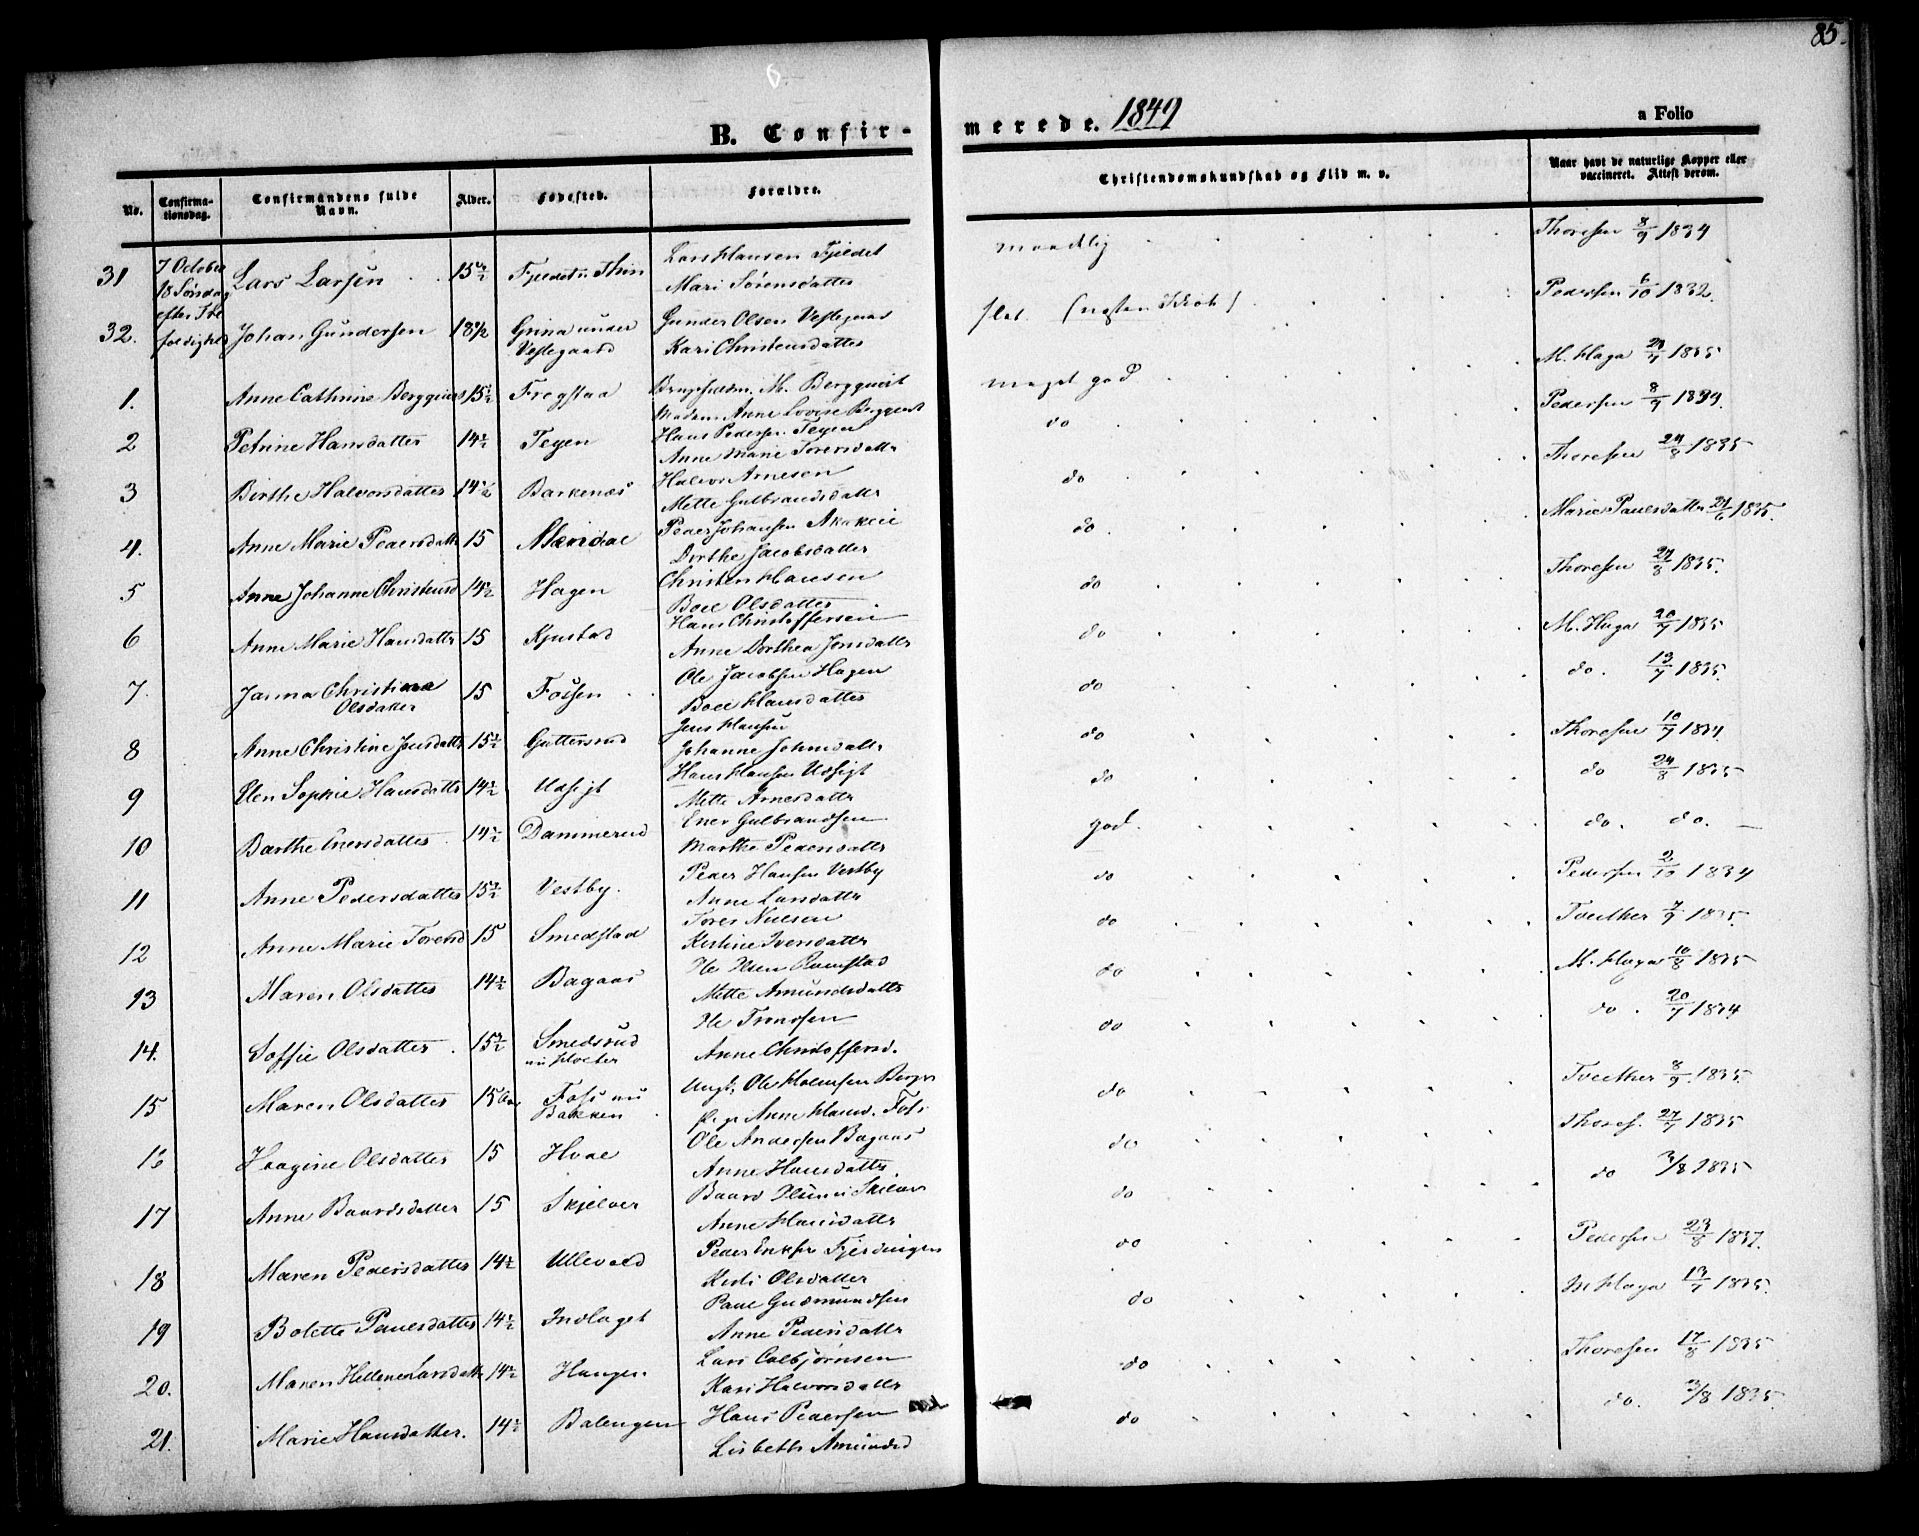 85.
B. Confir-
merede. 1849
a Folio
No.
Confirma-
tionsdag.
Confirmandens fulde
Navn.
Alder.
Fødested.
Forældre.
Christendomskundskab og Flid m. v.
Naar havt de naturlige Kopper eller
vaccineret. Attest derom.
7 October
18 Søndag
efter Tre
foldighed
31 Lars Larsen 15 1/2 Lars Hansen Fjeldet
Mari Sørensdatter
maadelig Thoresen 8/9 1834
32. Johan Gundersen 18 1/2 Grina under
Vestegaard
Gunder Olsen Vestegaard
Kari Christensdatter
slet. (næsten Idiot) Pedersen 6/10 1832.
1. Anne Cathrine Bergquist 15 1/2 Frogstaa M. Bergquist
Madm. Anne Lovise Bergquist
meget god M. Haga 1835
2 Petrine Hansdatter 14 1/2 Teyen Hans Pedersen Teyen
Anne Marie Torersdatter
do Pedersen 8/9 1834.
3 Birthe Halvorsdatter 14 1/2 Barkenæs Halvor Arnesen
Mette Gulbrandsdatter
do Thoresen 24/8 1835
4. Anne Marie Pedersdatter 15 Peder Johansen
Dorthe Jacobsdatter
do. Marie Paulsdatter 21/6 1835.
5 Anne Johanne Christensd 14 1/2 Hagen Christen Hansen
Boel Olsdatter
do Thoresen 24/8 1835.
6 Anne Marie Hansdatter 15 Kjustad Hans Christoffersen
Anne Dorthea Jensdatter
do M. Haga 20/7 1835
7. Janna Christiana
Olsdatter
15 Fossen Ole Jacobsen Hagen
Boel Hansdatter
do do. 13/7 1835.
8 Anne Christine Jensdatter 15 1/2 Guttersrud Jens Hansen
Johanne Johnsdatter
do Thoresen 10/9 1834.
9 Elen Sophie Hansdatter 14 1/2 Udsigt Hans Hansen Udsigt
Mette Arnesdatter
do do 24/8 1835
10 Barthe Enersdatter 14 1/2 Dammerud Ener Gulbrandsen
Marthe Pedersdatter
god. do. do.
11 Anne Pedersdatter 15 1/2 Vestby. Peder Hansen Vestby
Anne Larsdatter
do Pedersen 2/10 1834
12 Anne Marie Torersd 15 Smedstad Torer Nielsen
Kirstine Iversdatter
do Tveither 7/9 1835.
13 Maren Olsdatter 14 1/2 Bagaas Ole Olsen Ramstad
Mette Amundsdatter
do M. Haga 10/8 1835
14. Soffie Olsdatter 15 1/2 Smedsrud
Ole Trondsen
Anne Christoffersd.
do do. 20/7 1834
15 Maren Olsdatter 15 Foss nu
Bakken
Ungk. Ole Halvorsen Berger
Pige Anne Hansd. Foss
do Tveither 8/9 1835.
16 Haagine Olsdatter 15 Hvael Ole Andersen Bagaas
Anne Hansdatter.
do Thores. 27/7 1835
17 Anne Baardsdatter 15 Skjelver Baard Olsen Skilver
Anne Hansdatter
do do 3/8 1835
18 Maren Pedersdatter 14 1/2 Ullevold Peder Eriksen Fjerdingen
Kirsti Olsdatter
do Pedersen 23/8 1837.
19 Bolette Paulsdatter 14 1/2 Indlaget Paul Gudmundsen
Anne Pedersdatter
do M Haga 13/7 1835.
20. Maren Hellene Larsdatter 14 1/2 Haugen Lars Colbjørnsen
Kari Halvorsdatter
do Thoresen 17/8 1835
21. Marie Hansdatter. 14 1/2 Balengen Hans Pedersen
Lisbeth Amundsd
do do. 3/8 1835.